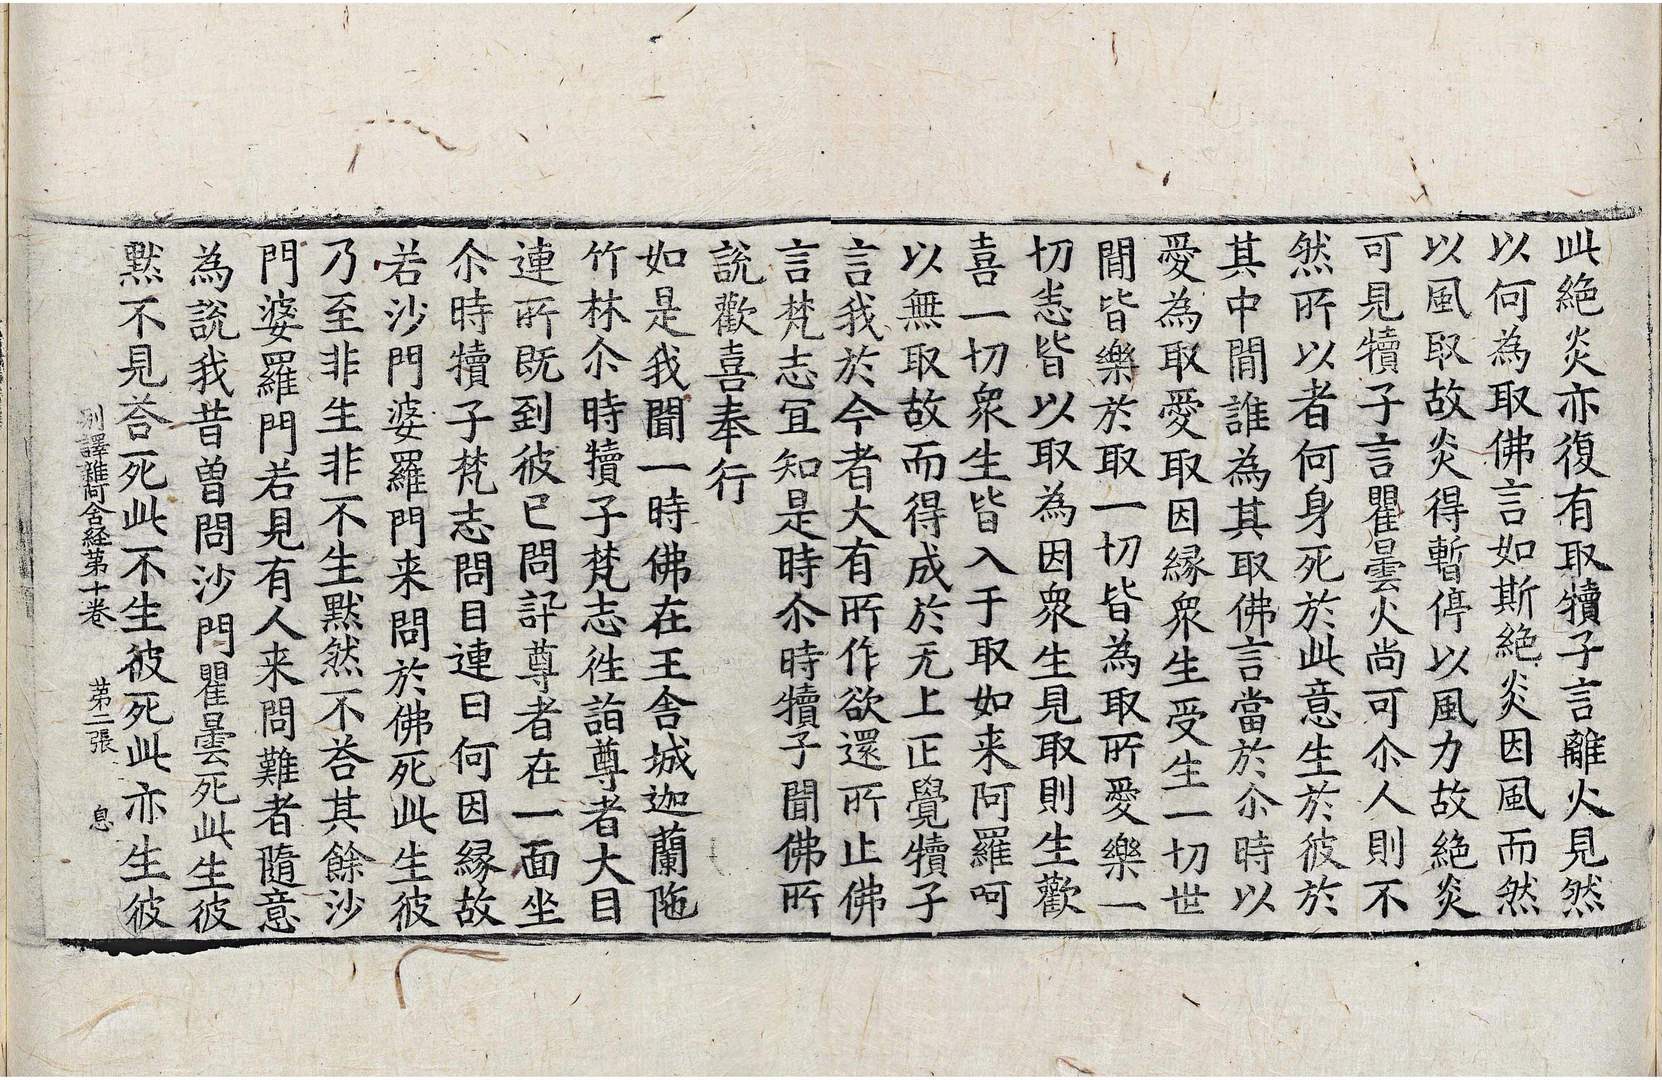 此絶炎亦復有取犢子言離火見然
以何為取佛言如斯絶炎因風而然
以風取故炎得暫停以風力故絶炎
可見犢子言瞿曇火尚可尒人則不
然所以者何身死於此意生於彼於
其中間誰為其取佛言當於尒時以
愛為取愛取因縁衆生受生一切世
間皆樂於取一切皆為取所愛樂一
切悉皆以取為因衆生見取則生歡
喜一切衆生皆入于取如来阿羅呵
以無取故而得成於无上正覺犢子
言我於今者大有所作欲還所止佛
言梵志冝知是時尒時犢子聞佛所
說歡喜奉行
如是我聞一時佛在王舎城迦蘭陁
竹林尒時犢子梵志徃詣尊者大目
連所既到彼已問訊尊者在一面坐
尒時犢子梵志問目連曰何因縁故
若沙門婆羅門来問於佛死此生彼
乃至非生非不生黙然不荅其餘沙
門婆羅門若見有人来問難者隨意
為說我昔曽問沙門瞿曇死此生彼
黙不見荅死此不生彼死此亦生彼
別譯雜阿含経第十卷 第二張 息